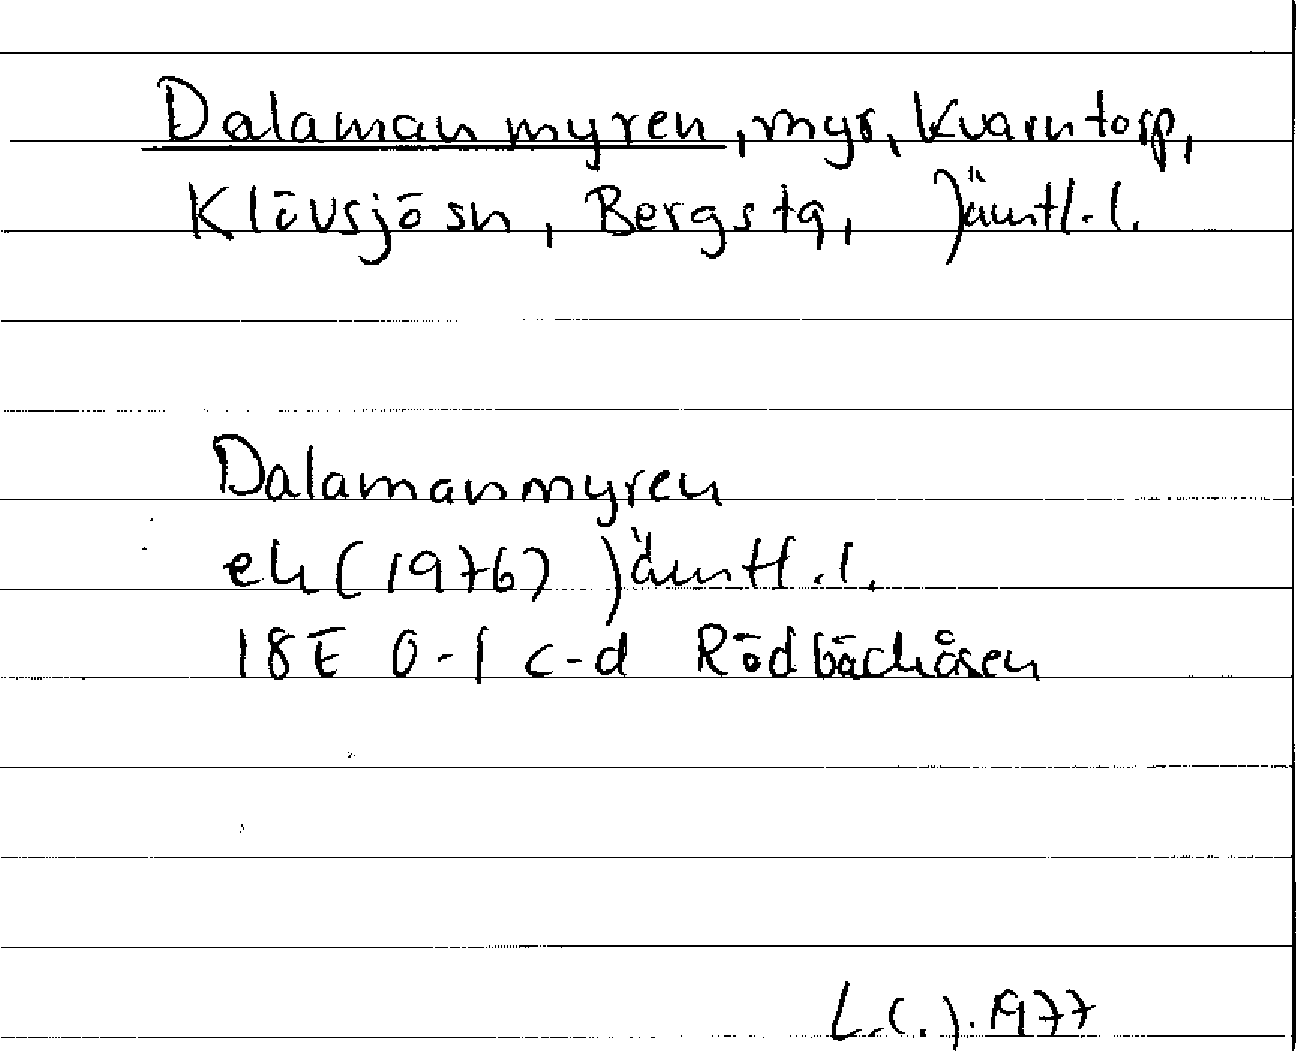 Dalamanmyren, myr, Kvarntorp,
Klövsjö sn, Bergs tg, Jämtl. l.
Dalamanmyren
ek (1976) Jämtl. l.
18E 0-1 c-d Rödbäckåsen
L.C.J. 1977